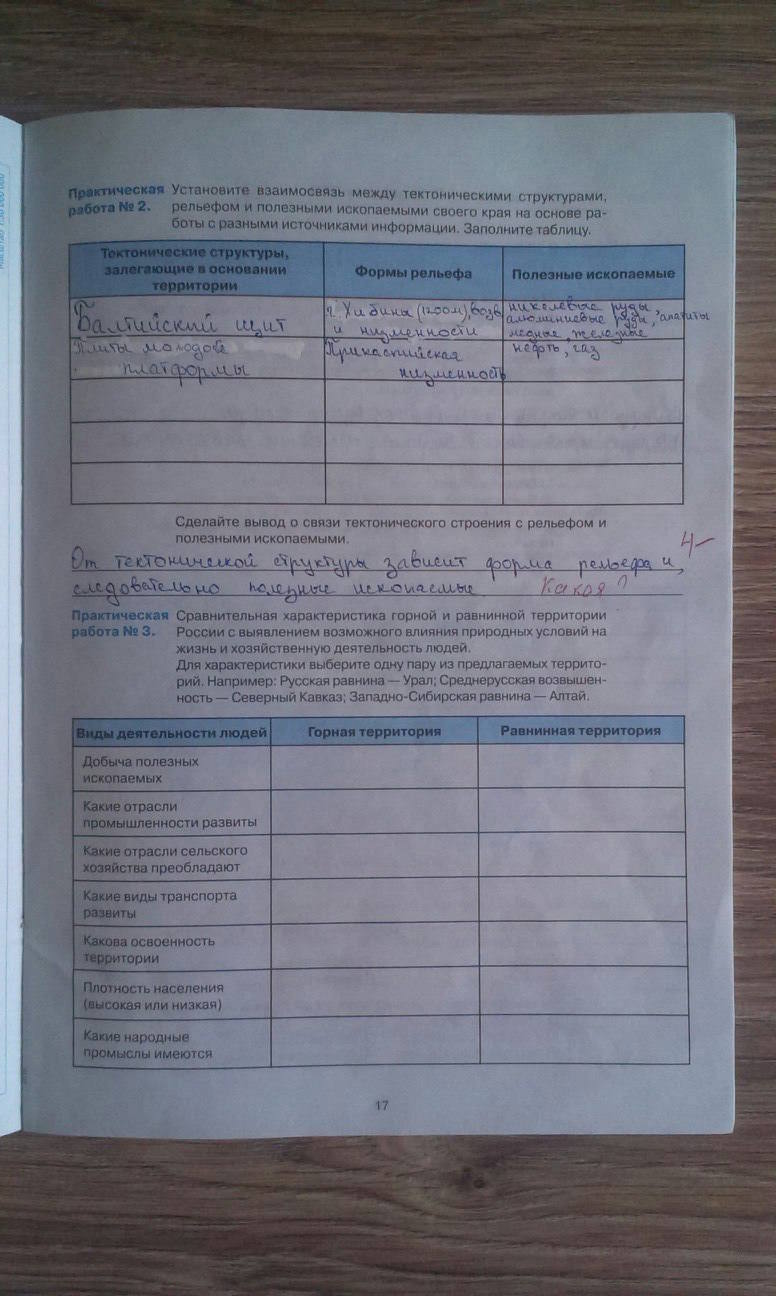 Практическая работа № 2.
Установите взаимосвязь между тектоническими структурами,
рельефом и полезными ископаемыми своего края на основе ра-
боты с разными источниками информации. Заполните таблицу.
Тектонические структуры,
залегающие в основании
территории
Формы рельефа
Полезные ископаемые
Балтийский щит
г. Хибины (1200м), возв
и низменности
никелевые руды,
алюминиевые руды, апатиты
медные, железные
Плиты молодой
платформы
Прикаспийская
низменность
нефть, газ
Сделайте вывод о связи тектонического строения с рельефом и
полезными ископаемыми.
4-
От тектонической структуры зависит форма рельефа и,
следовательно полезные ископаемые Какая?
Практическая работа № 3.
Сравнительная характеристика горной и равнинной территории
России с выявлением возможного влияния природных условий на
жизнь и хозяйственную деятельность людей.
Для характеристики выберите одну пару из предлагаемых террито-
рий. Например: Русская равнина — Урал; Среднерусская возвышен-
ность — Северный Кавказ; Западно-Сибирская равнина — Алтай.
Виды деятельности людей
Горная территория
Равнинная территория
Добыча полезных
ископаемых
Какие отрасли
промышленности развиты
Какие отрасли сельского
хозяйства преобладают
Какие виды транспорта
развиты
Какова освоенность
территории
Плотность населения
(высокая или низкая)
Какие народные
промыслы имеются
17